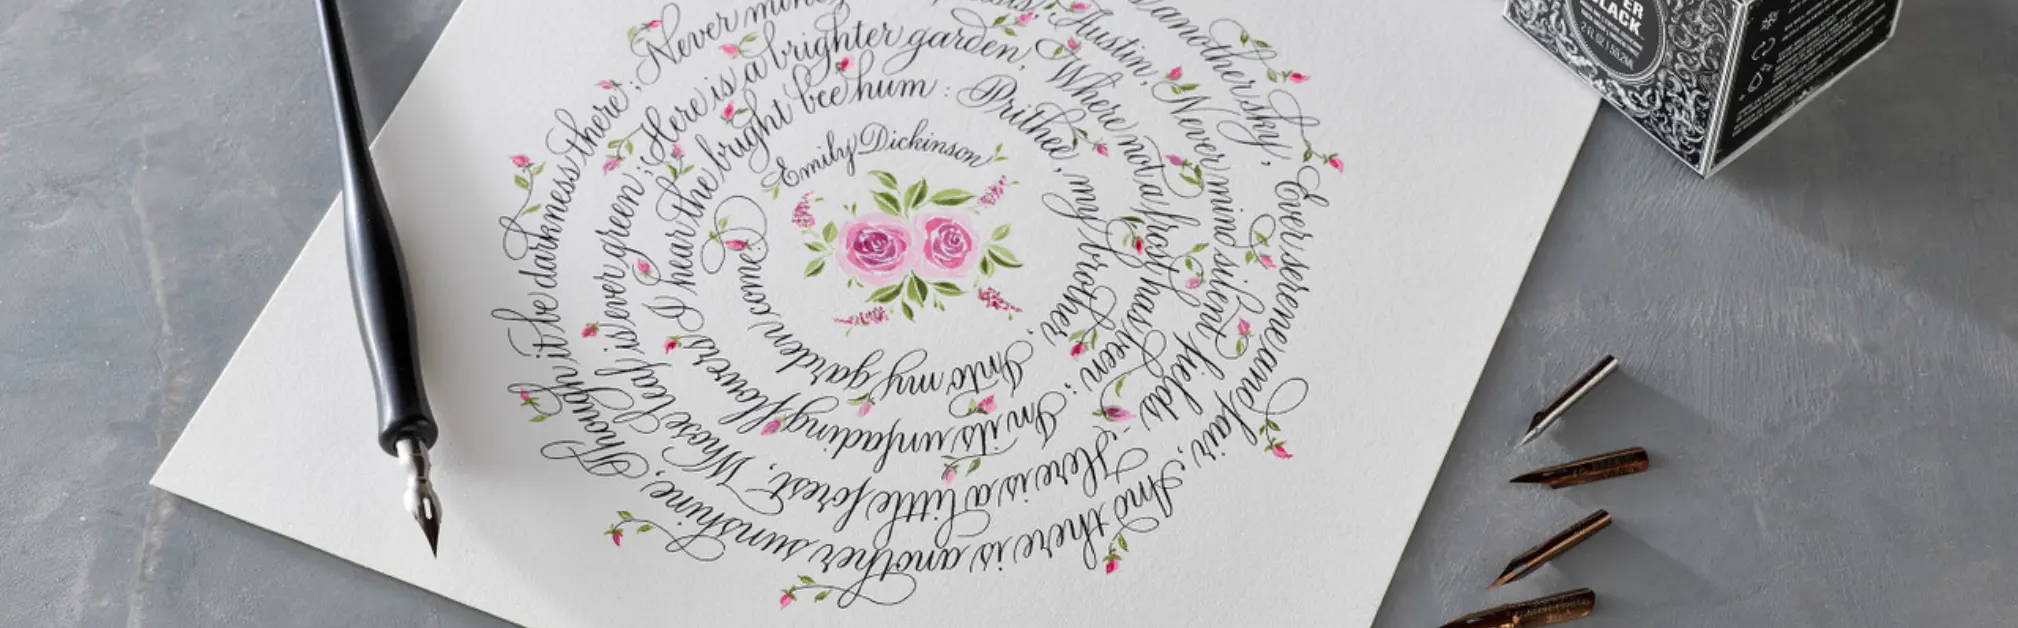 another sky,
Ever serene and fair,
And there is another sunshine,
Though it be darkness there;
Never mind
Austin,
Never mind silent fields -
Here is a little forest,
Whose leaf is ever green;
Here is a brighter garden,
Where not a frost has been;
In its unfading flowers
I hear the bright bee hum:
Prithee, my brother,
Into my garden come!
Emily Dickinson
BLACK
2 FL OZ | 59.2ML